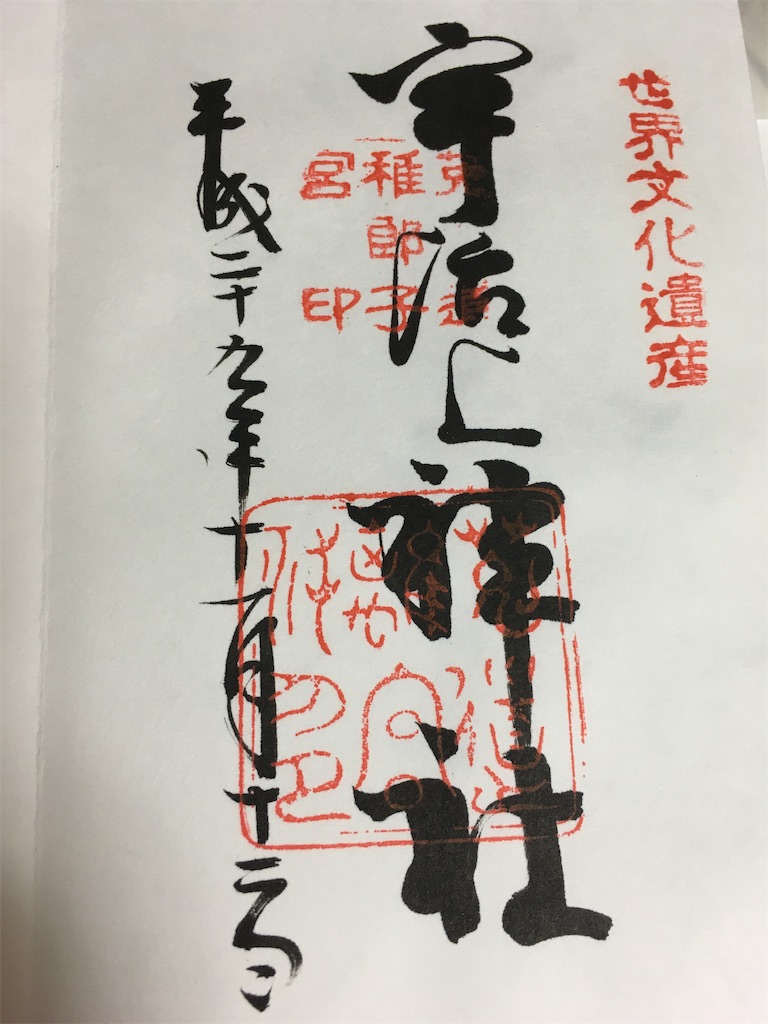 世界文化遺産
宇治上神社
菟道
稚郎子
宮印
平成二十九年十一月十二日